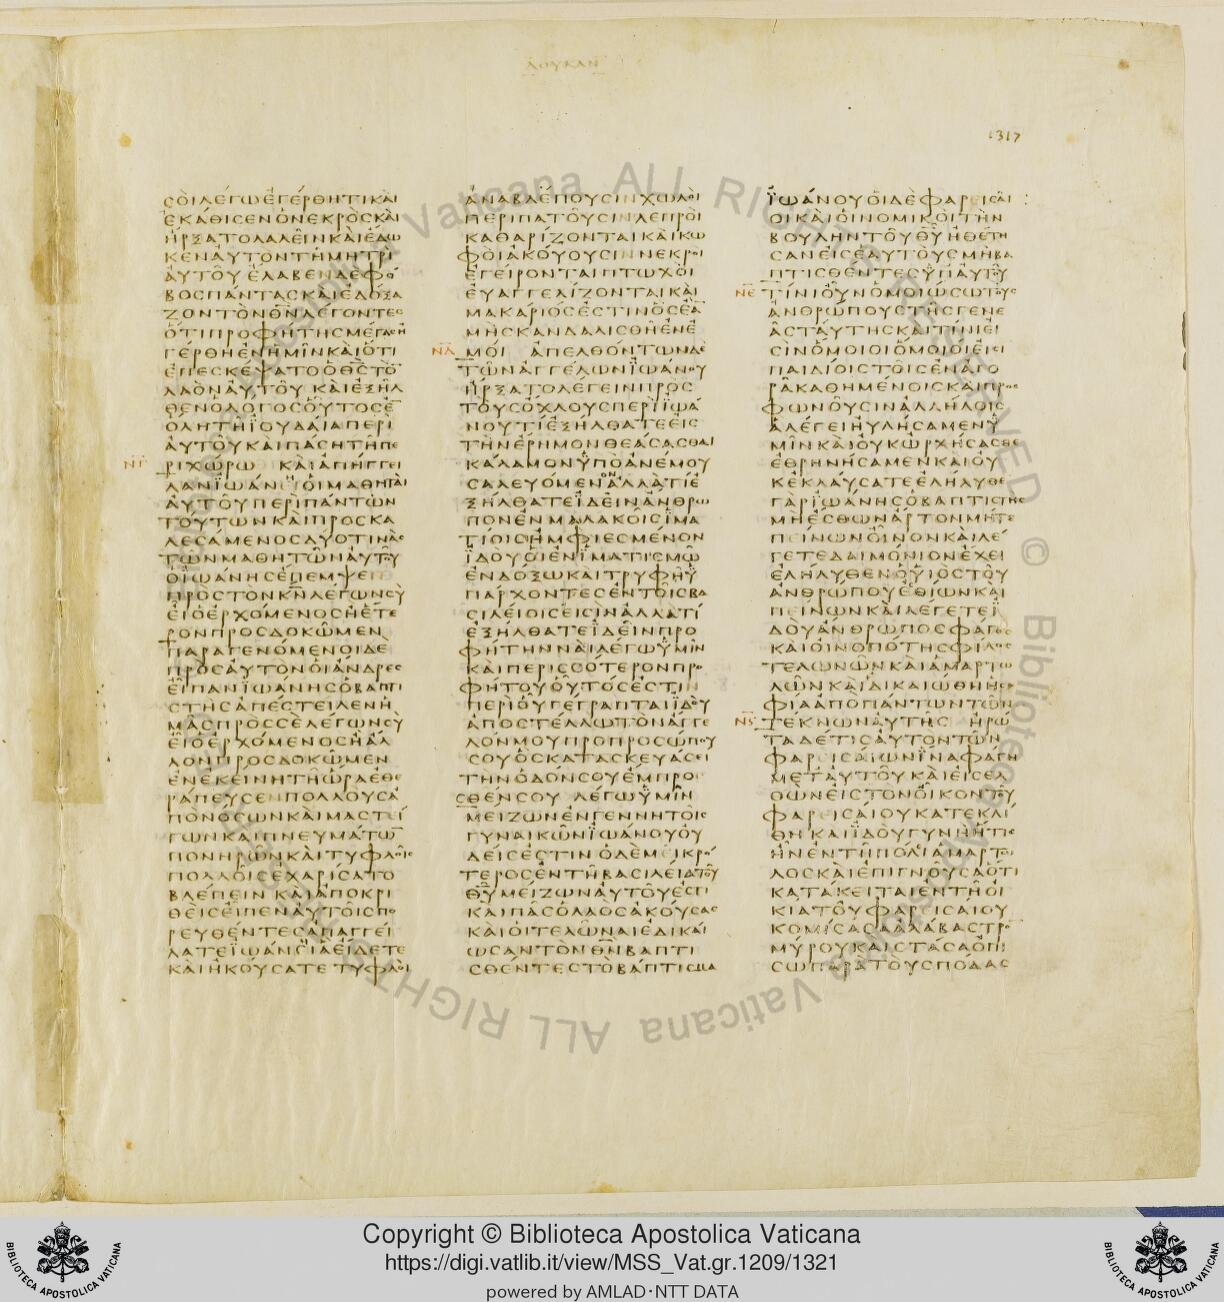 ΛΟΥΚΑΝ
1317
ΣΟΙΛΕΓΩΕΓΕΡΘΗΤΙΚΑΙ
ΕΚΑΘΙΣΕΝΟΝΕΚΡΟΣΚΑΙ
ΗΡΞΑΤΟΛΑΛΕΙΝΚΑΙΕΔΩ
ΚΕΝΑΥΤΟΝΤΗΜΗΤΡΙ
ΑΥΤΟΥ ΕΛΑΒΕΝΔΕΦΟ
ΒΟΣΠΑΝΤΑΣΚΑΙΕΔΟΞΑ
ΖΟΝΤΟΝΘΝΛΕΓΟΝΤΕΣ
ΟΤΙΠΡΟΦΗΤΗΣΜΕΓΑΣΗ
ΓΕΡΘΗΕΝΗΜΙΝΚΑΙΟΤΙ
ΕΠΕΣΚΕΨΑΤΟΟΘΣΤΟ
ΛΑΟΝΑΥΤΟΥ ΚΑΙΕΞΗΛ
ΘΕΝΟΛΟΓΟΣΟΥΤΟΣΕ
ΟΛΗΤΗΙΟΥΔΑΙΑΠΕΡΙ
ΑΥΤΟΥΚΑΙΠΑΣΗΤΗΠΕ
ΝΓ ΡΙΧΩΡΩ ΚΑΙΑΠΗΓΓΕΙ
ΛΑΝΙΩΑΝΕΙΟΙΜΑΘΗΤΑΙ
ΑΥΤΟΥΠΕΡΙΠΑΝΤΩΝ
ΤΟΥΤΩΝΚΑΙΠΡΟΣΚΑ
ΛΕΣΑΜΕΝΟΣΔΥΟΤΙΝΑΣ
ΤΩΝΜΑΘΗΤΩΝΑΥΤΟΥ
ΟΙΩΑΝΗΣΕΠΕΜΨΕΝ
ΠΡΟΣΤΟΝΚΝΛΕΓΩΝΣΥ
ΕΙΟΕΡΧΟΜΕΝΟΣΗΕΤΕ
ΡΟΝΠΡΟΣΔΟΚΩΜΕΝ
ΠΑΡΑΓΕΝΟΜΕΝΟΙΔΕ
ΠΡΟΣΑΥΤΟΝΟΙΑΝΔΡΕΣ
ΕΙΠΑΝΙΩΑΝΗΣΟΒΑΠΤΙ
ΣΤΗΣΑΠΕΣΤΕΙΛΕΝΗ
ΜΑΣΠΡΟΣΣΕΛΕΓΩΝΣΥ
ΕΙΟΕΡΧΟΜΕΝΟΣΗΑΛ
ΛΟΝΠΡΟΣΔΟΚΩΜΕΝ
ΕΝΕΚΕΙΝΗΤΗΩΡΑΕΘΕ
ΡΑΠΕΥΣΕΝΠΟΛΛΟΥΣΑ
ΠΟΝΟΣΩΝΚΑΙΜΑΣΤΕΙ
ΓΩΝΚΑΙΠΝΕΥΜΑΤΩ
ΠΟΝΗΡΩΝΚΑΙΤΥΦΛΟΙΣ
ΠΟΛΛΟΙΣΕΧΑΡΙΣΑΤΟ
ΒΛΕΠΕΙΝ ΚΑΙΑΠΟΚΡΙ
ΘΕΙΣΕΙΠΕΝΑΥΤΟΙΣΠΟ
ΡΕΥΘΕΝΤΕΣΑΠΑΓΓΕΙ
ΛΑΤΕΙΩΑΝΕΙΑΕΙΔΕΤΕ
ΚΑΙΗΚΟΥΣΑΤΕ ΤΥΦΛΟΙ
ΑΝΑΒΛΕΠΟΥΣΙΝΧΩΛΟΙ
ΠΕΡΙΠΑΤΟΥΣΙΝΛΕΠΡΟΙ
ΚΑΘΑΡΙΖΟΝΤΑΙΚΑΙΚΩ
ΦΟΙΑΚΟΥΟΥΣΙΝΝΕΚΡΟΙ
ΕΓΕΙΡΟΝΤΑΙΠΤΩΧΟΙ
ΕΥΑΓΓΕΛΙΖΟΝΤΑΙΚΑΙ
ΜΑΚΑΡΙΟΣΕΣΤΙΝΟΣΕΑ
ΜΗΣΚΑΝΔΑΛΙΣΘΗΕΝΕ
ΝΔ ΜΟΙ ΑΠΕΛΘΟΝΤΩΝΔΕ
ΤΩΝΑΓΓΕΛΩΝΙΩΑΝΟΥ
ΗΡΞΑΤΟΛΕΓΕΙΝΠΡΟΣ
ΤΟΥΣΟΧΛΟΥΣΠΕΡΙΙΩΑ
ΝΟΥΤΙΕΞΗΛΘΑΤΕΕΙΣ
ΤΗΝΕΡΗΜΟΝΘΕΑΣΑΣΘΑΙ
ΚΑΛΑΜΟΝΥΠΟΑΝΕΜΟΥ
ΣΑΛΕΥΟΜΕΝΟΝΑΛΛΑΤΙΕ
ΞΗΛΘΑΤΕΙΔΕΙΝΑΝΘΡΩ
ΠΟΝΕΝΜΑΛΑΚΟΙΣΙΜΑ
ΤΙΟΙΣΗΜΦΙΕΣΜΕΝΟΝ
ΙΔΟΥΟΙΕΝΙΜΑΤΙΣΜΩ
ΕΝΔΟΞΩΚΑΙΤΡΥΦΗΥ
ΠΑΡΧΟΝΤΕΣΕΝΤΟΙΣΒΑ
ΣΙΛΕΙΟΙΣΕΙΣΙΝΑΛΛΑΤΙ
ΕΞΗΛΘΑΤΕΙΔΕΙΝΠΡΟ
ΦΗΤΗΝΝΑΙΛΕΓΩΥΜΙΝ
ΚΑΙΠΕΡΙΣΣΟΤΕΡΟΝΠΡΟ
ΦΗΤΟΥΟΥΤΟΣΕΣΤΙΝ
ΠΕΡΙΟΥΓΕΓΡΑΠΤΑΙΙΔΟΥ
ΑΠΟΣΤΕΛΛΩΤΟΝΑΓΓΕ
ΛΟΝΜΟΥΠΡΟΠΡΟΣΩΠΟΥ
ΣΟΥΟΣΚΑΤΑΣΚΕΥΑΣΕΙ
ΤΗΝΟΔΟΝΣΟΥΕΜΠΡΟ
ΣΘΕΝΣΟΥ ΛΕΓΩΥΜΙΝ
ΜΕΙΖΩΝΕΝΓΕΝΝΗΤΟΙΣ
ΓΥΝΑΙΚΩΝΙΩΑΝΟΥΟΥ
ΔΕΙΣΕΣΤΙΝ ΟΔΕΜΕΙΚΡΟ
ΤΕΡΟΣΕΝΤΗΒΑΣΙΛΕΙΑΤΟΥ
ΘΥΜΕΙΖΩΝΑΥΤΟΥΕΣΤΙ
ΚΑΙΠΑΣΟΛΑΟΣΑΚΟΥΣΑΣ
ΚΑΙΟΙΤΕΛΩΝΑΙΕΔΙΚΑΙ
ΩΣΑΝΤΟΝΘΝΒΑΠΤΙ
ΣΘΕΝΤΕΣΤΟΒΑΠΤΙΣΜΑ
ΙΩΑΝΟΥΟΙΔΕΦΑΡΕΙΣΑΙ
ΟΙΚΑΙΟΙΝΟΜΙΚΟΙΤΗΝ
ΒΟΥΛΗΝΤΟΥΘΥΗΘΕΤΗ
ΣΑΝΕΙΣΕΑΥΤΟΥΣΜΗΒΑ
ΠΤΙΣΘΕΝΤΕΣΥΠΑΥΤΟΥ
ΝΕ ΤΙΝΙΟΥΝΟΜΟΙΩΣΩΤΟΥΣ
ΑΝΘΡΩΠΟΥΣΤΗΣΓΕΝΕ
ΑΣΤΑΥΤΗΣΚΑΙΤΙΝΙΕΙ
ΣΙΝΟΜΟΙΟΙΟΜΟΙΟΙΕΙΣΙ
ΠΑΙΔΙΟΙΣΤΟΙΣΕΝΑΓΟ
ΡΑΚΑΘΗΜΕΝΟΙΣΚΑΙΠΡΟΣ
ΦΩΝΟΥΣΙΝΑΛΛΗΛΟΙΣ
ΑΛΕΓΕΙΗΥΛΗΣΑΜΕΝΥ
ΜΙΝΚΑΙΟΥΚΩΡΧΗΣΑΣΘΕ
ΕΘΡΗΝΗΣΑΜΕΝΚΑΙΟΥ
ΚΕΚΛΑΥΣΑΤΕΕΛΗΛΥΘΕ
ΓΑΡΙΩΑΝΗΣΟΒΑΠΤΙΣΤΗΣ
ΜΗΕΣΘΩΝΑΡΤΟΝΜΗΤΕ
ΠΕΙΝΩΝΟΙΝΟΝΚΑΙΛΕ
ΓΕΤΕΔΑΙΜΟΝΙΟΝΕΧΕΙ
ΕΛΗΛΥΘΕΝΟΥΙΟΣΤΟΥ
ΑΝΘΡΩΠΟΥΕΣΘΙΩΝΚΑΙ
ΠΕΙΝΩΝΚΑΙΛΕΓΕΤΕΙ
ΔΟΥΑΝΘΡΩΠΟΣΦΑΓΟΣ
ΚΑΙΟΙΝΟΠΟΤΗΣΦΙΛΟΣ
ΤΕΛΩΝΩΝΚΑΙΑΜΑΡΤΩ
ΛΩΝΚΑΙΔΙΚΑΙΩΘΗΗΣΟ
ΦΙΑΑΠΟΠΑΝΤΩΝΤΩΝ
ΝϚ ΤΕΚΝΩΝΑΥΤΗΣ ΗΡΩ
ΤΑΔΕΤΙΣΑΥΤΟΝΤΩΝ
ΦΑΡΕΙΣΑΙΩΝΙΝΑΦΑΓΗ
ΜΕΤΑΥΤΟΥΚΑΙΕΙΣΕΛ
ΘΩΝΕΙΣΤΟΝΟΙΚΟΝΤΟΥ
ΦΑΡΕΙΣΑΙΟΥΚΑΤΕΚΛΙ
ΘΗ ΚΑΙΙΔΟΥΓΥΝΗΗΤΙΣ
ΗΝΕΝΤΗΠΟΛΕΙΑΜΑΡΤΩ
ΛΟΣΚΑΙΕΠΙΓΝΟΥΣΑΟΤΙ
ΚΑΤΑΚΕΙΤΑΙΕΝΤΗΟΙ
ΚΙΑΤΟΥΦΑΡΕΙΣΑΙΟΥ
ΚΟΜΙΣΑΣΑΑΛΑΒΑΣΤΡΟ
ΜΥΡΟΥΚΑΙΣΤΑΣΑΟΠΙ
ΣΩΠΑΡΑΤΟΥΣΠΟΔΑΣ
Biblioteca Apostolica Vaticana ALL RIGHTS RESERVED ©
Copyright © Biblioteca Apostolica Vaticana
https://digi.vatlib.it/view/MSS_Vat.gr.1209/1321
powered by AMLAD·NTT DATA
BIBLIOTECA APOSTOLICA VATICANA
BIBLIOTECA APOSTOLICA VATICANA